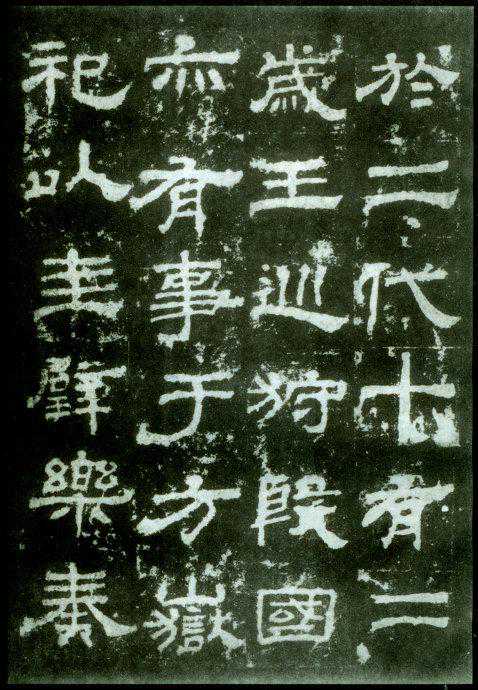 於二代十有二
歲王巡狩殷國
亦有事于方嶽
祀以圭璧樂奏